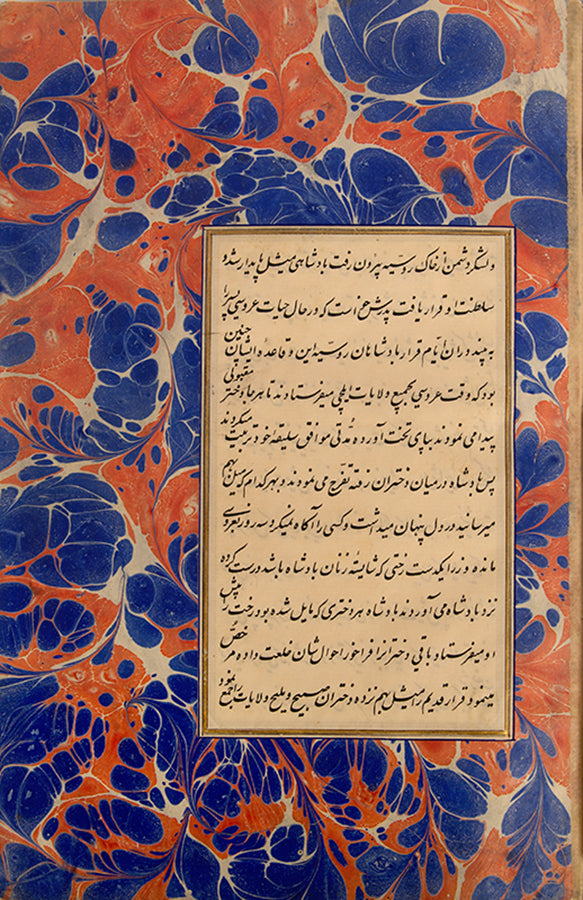 و لشکر دشمن از خاک روسیه بیرون رفت پادشاهی میشل پایدار شد و
سلطنت او قرار یافت پدرش میخواست که در حال حیات عروسی پسر را
به بیند در ان ایام قرار پادشاهان روسیه این و قاعدهٔ ایشان چنین
بود که وقت عروسی بجمیع ولایات ایلچی میفرستادند تا هر جا دختر مقبولی
پیدا می نمودند بپای تخت آورده مدتی موافق سلیقهٔ خود تربیت میکردند
پس پادشاه درمیان دختران رفته تفرّج می نمودند و بهر کدام که میل بهم
میرسانید در دل پنهان میداشت و کسی را آگاه نمیکرد سه روز بعروسی
مانده وزرا یکدست رختی که شایستهٔ زنان پادشاه باشد درست کرده
نزد پادشاه می آوردند پادشاه هر دختری که مایل شده بود رخت را پیش
او میفرستاد باقی دختران را فراخور احوال شان خلعت داده مرخص
مینمود قرار قدیم را میشل بهم نزده دختران صبیح و ملیح ولایات را جمع نمود